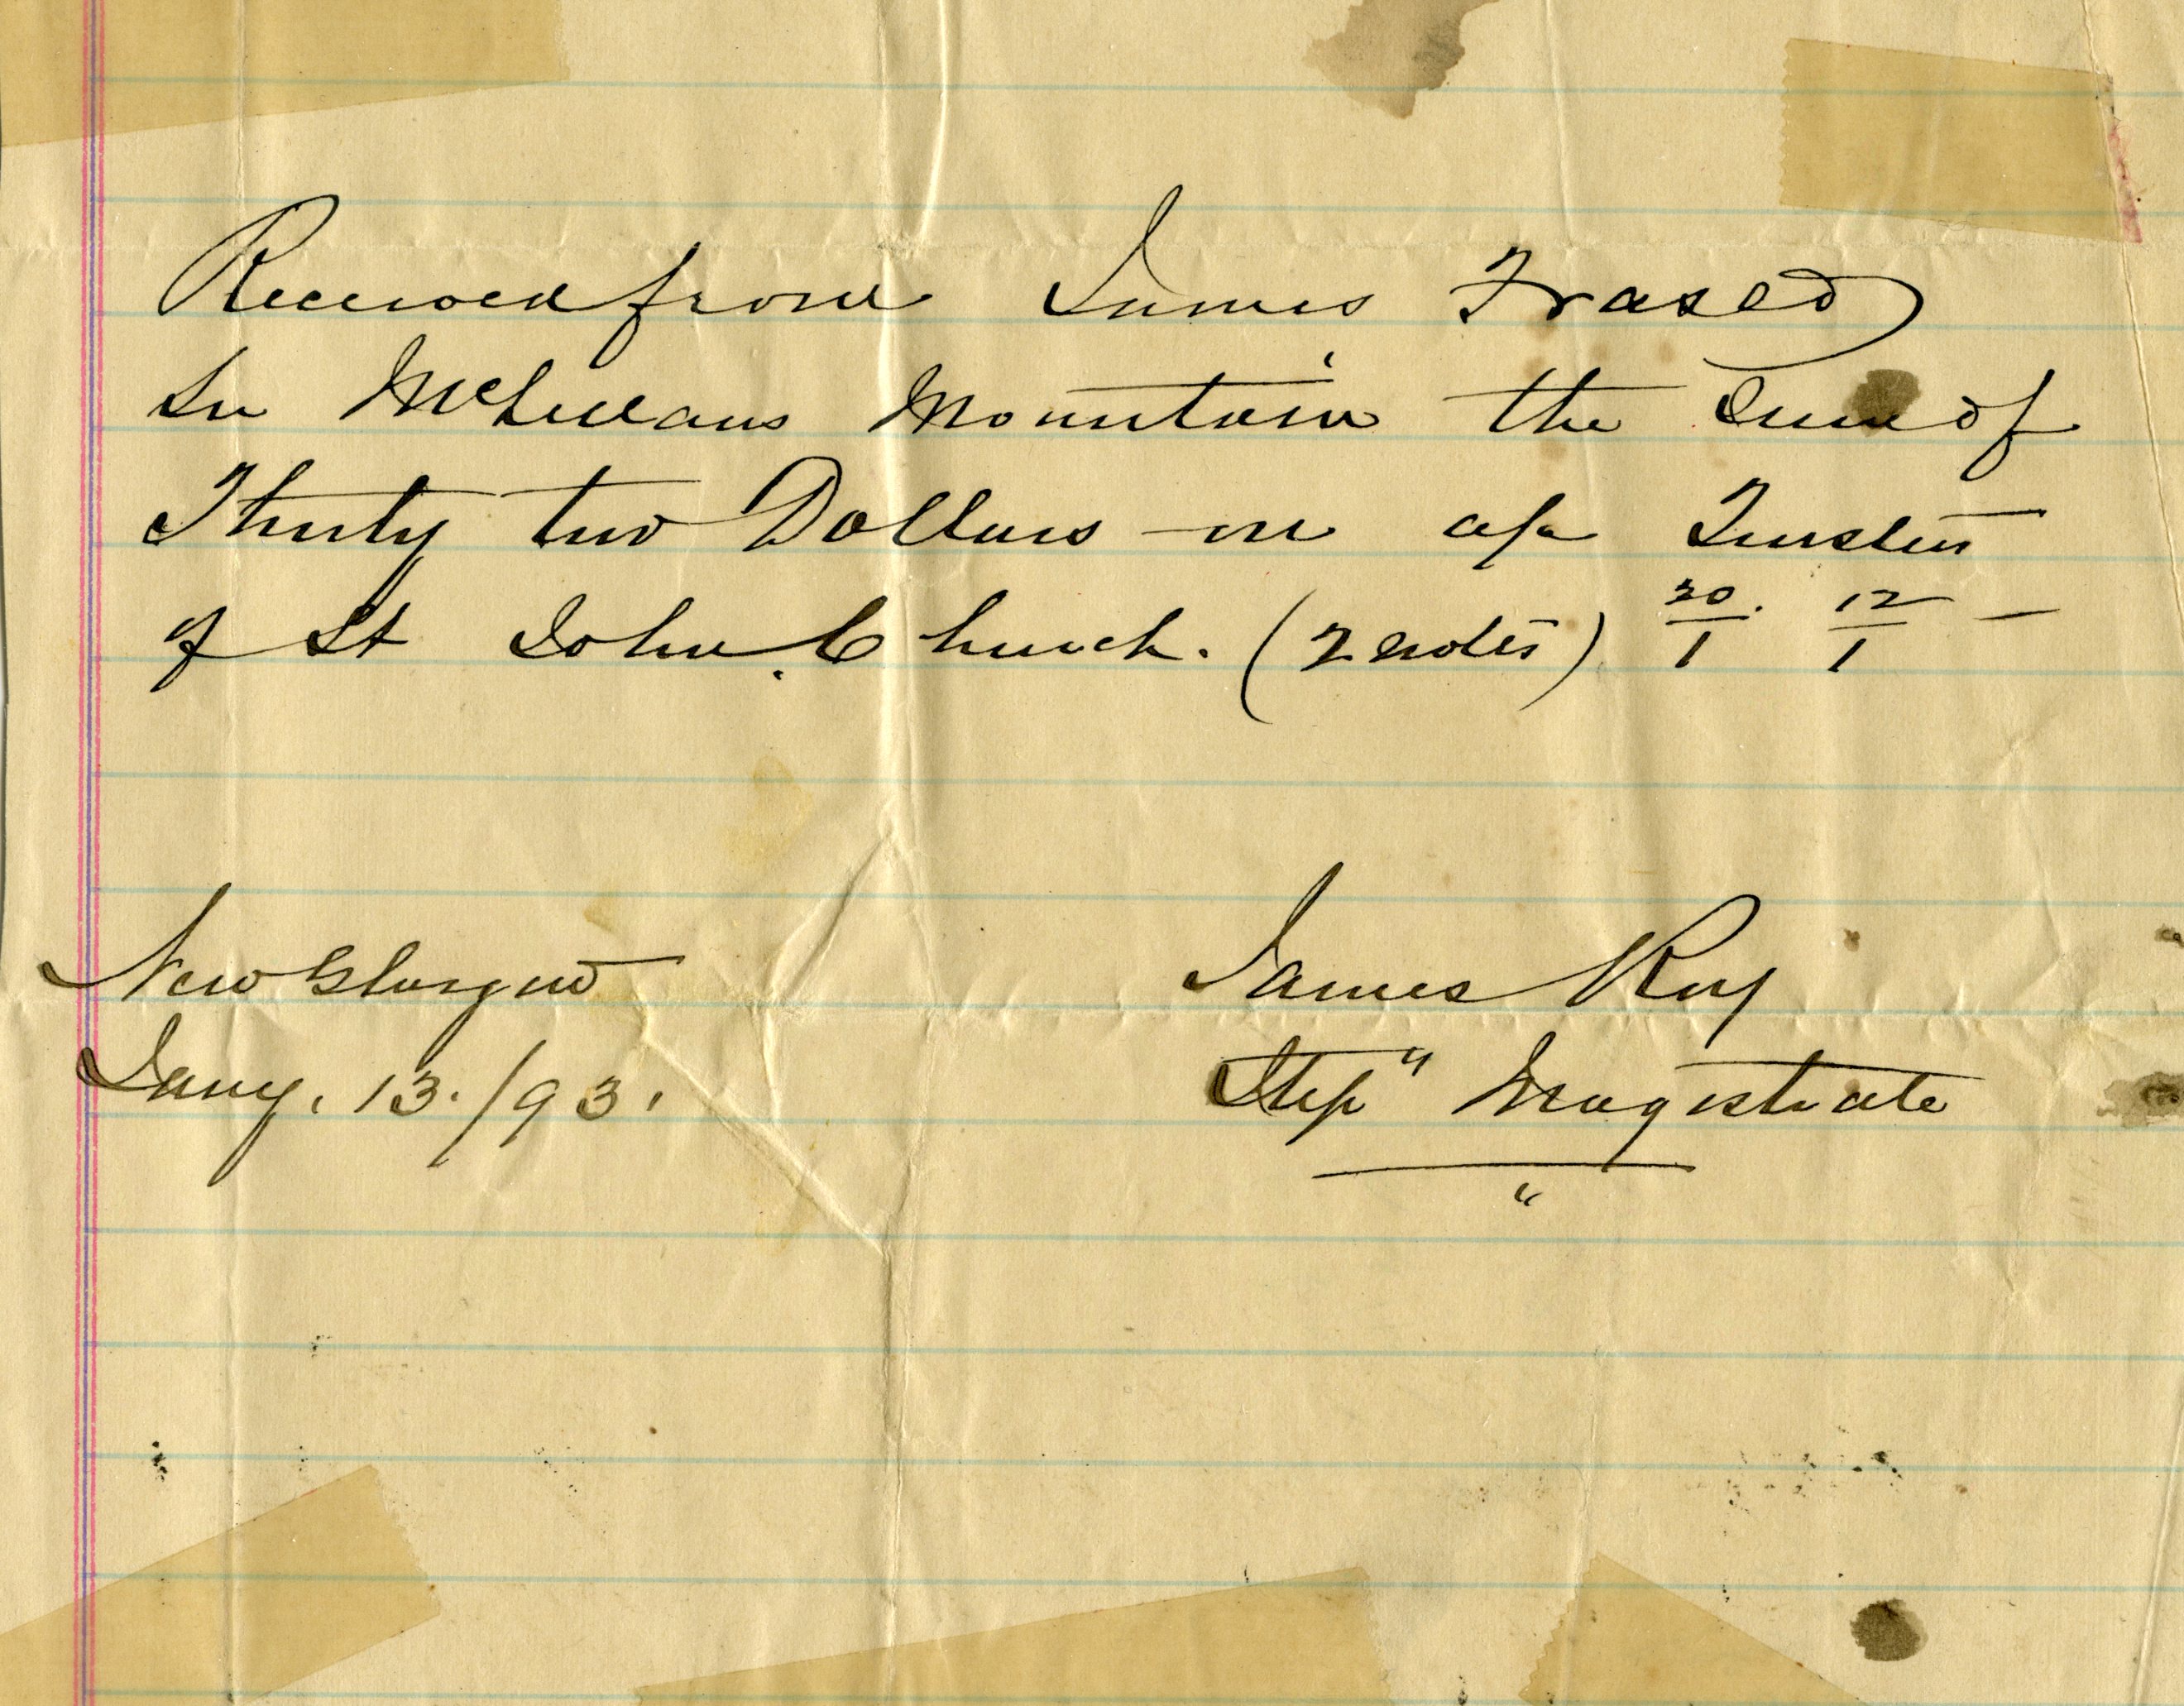 Received from James Fraser
Sr McLellans Mountain the Sum of
Thirty two Dollars on a/c Trustees
of St John Church. (2 notes) 20/1 . 12/1 —
New Glasgow
Jany. 13./93.
James Roy
Stip" Magistrate
"